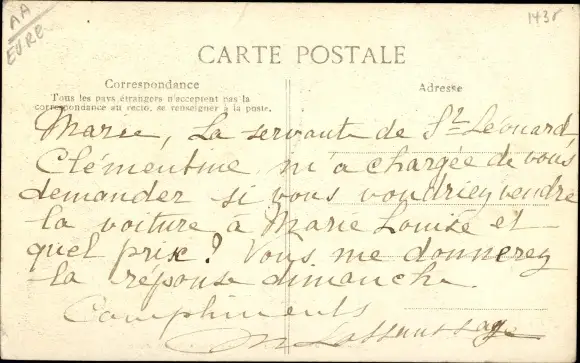 AA
EURE
1438
CARTE POSTALE
Correspondance
Adresse
Tous les pays étrangers n'acceptent pas la
correspondance au recto, se renseigner à la poste.
Marie, La servante de St Léonard,
Clémentine m'a chargée de vous
demander si vous voudriez vendre
la voiture à Marie Louise et
quel prix? Vous me donnerez
la réponse dimanche
Compliments